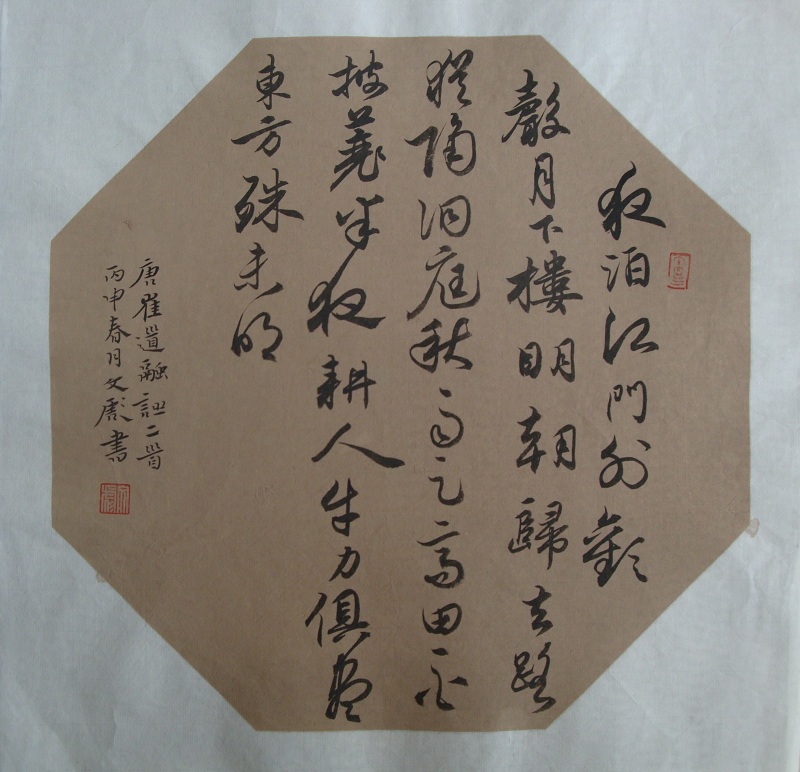 夜泊江門外歡
聲月下樓明朝歸去路
猶隔洞庭秋雨足高田白
披蓑半夜耕人牛力俱盡
東方殊未明
唐崔道融詩二首
丙申春月文書